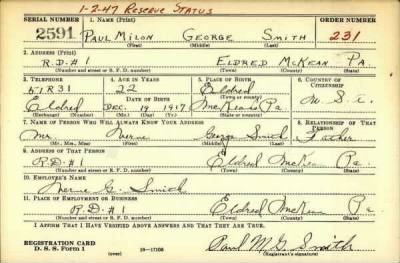 1-2-47 Reserve Status
SERIAL NUMBER 1. NAME (Print) ORDER NUMBER
2591 Paul Milon George Smith 231
(First) (Middle) (Last)
2. ADDRESS (Print)
R.D. #1 Eldred McKean Pa.
(Number and street or R. F. D. number) (Town) (County) (State)
3. TELEPHONE 4. AGE IN YEARS 5. PLACE OF BIRTH 6. COUNTRY OF CITIZENSHIP
51R31 22 Eldred
(Town or county)
DATE OF BIRTH
Eldred Dec. 19 1917 McKean Pa U.S.A.
(Exchange) (Number) (Mo.) (Day) (Yr.) (State or country)
7. NAME OF PERSON WHO WILL ALWAYS KNOW YOUR ADDRESS 8. RELATIONSHIP OF THAT PERSON
Mr. George Smith Father
(Mr., Mrs., Miss) (First) (Middle) (Last)
9. ADDRESS OF THAT PERSON
R.D. #1 Eldred McKean Pa.
(Number and street or R. F. D. number) (Town) (County) (State)
10. EMPLOYER'S NAME
G. Smith
11. PLACE OF EMPLOYMENT OR BUSINESS
R.D. #1 Eldred McKean Pa
(Number and street or R. F. D. number) (Town) (County) (State)
I AFFIRM THAT I HAVE VERIFIED ABOVE ANSWERS AND THAT THEY ARE TRUE.
REGISTRATION CARD
D. S. S. Form 1 (over) 16—17105 Paul M G Smith
(Registrant's signature)